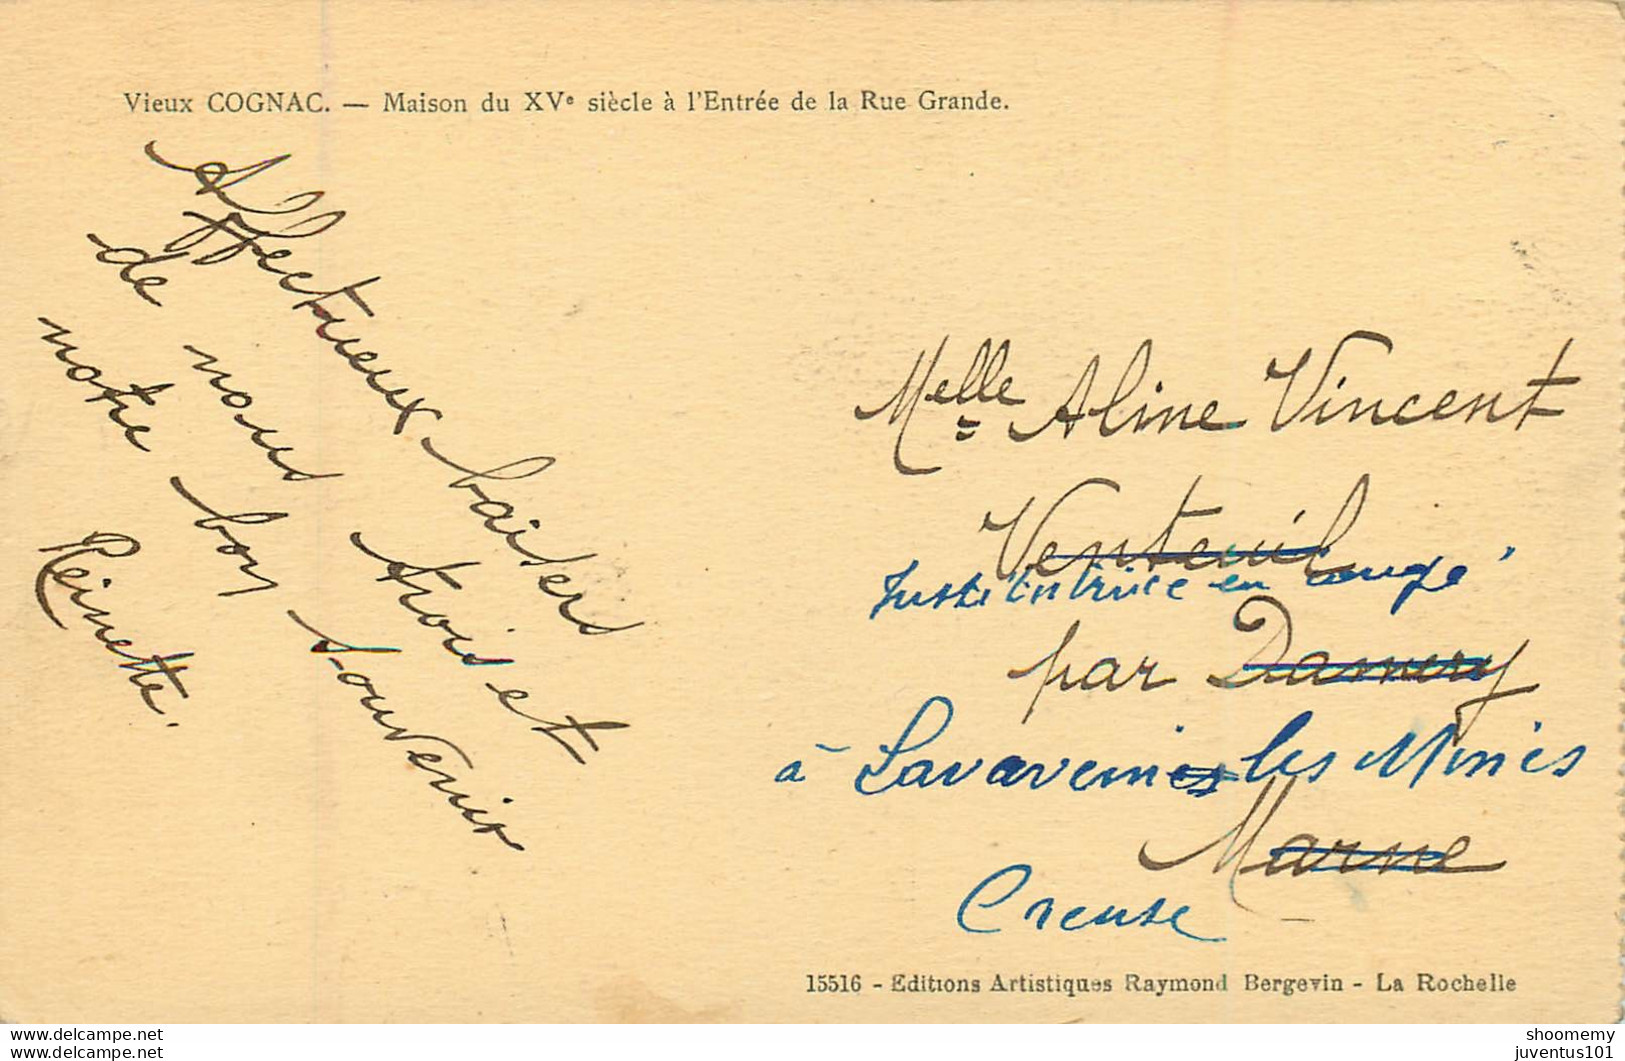 Vieux COGNAC. — Maison du XVe siècle à l'Entrée de la Rue Grande.
Affectueux baisers
de nous trois et
notre bon souvenir
Reinette.
Melle Aline Vincent
Venteuil
Institutrice en congé
par Damery
à Lavaveix les Mines
Marne
Creuse
15516 - Editions Artistiques Raymond Bergevin - La Rochelle
https://www.delcampe.net
Reinette
shoomemy
juventus101